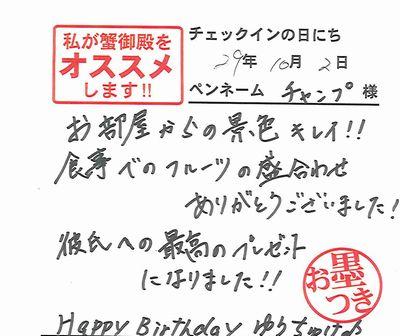 私が蟹御殿を
オススメ
します!!
チェックインの日にち
29年 10月 2日
ペンネーム チャンプ 様
お部屋からの景色キレイ!!
食事へのフルーツの盛合わせ
ありがとうございました!
彼氏への最高のプレゼント
になりました!!
お墨つき
Happy Birthday ゆうちゃん